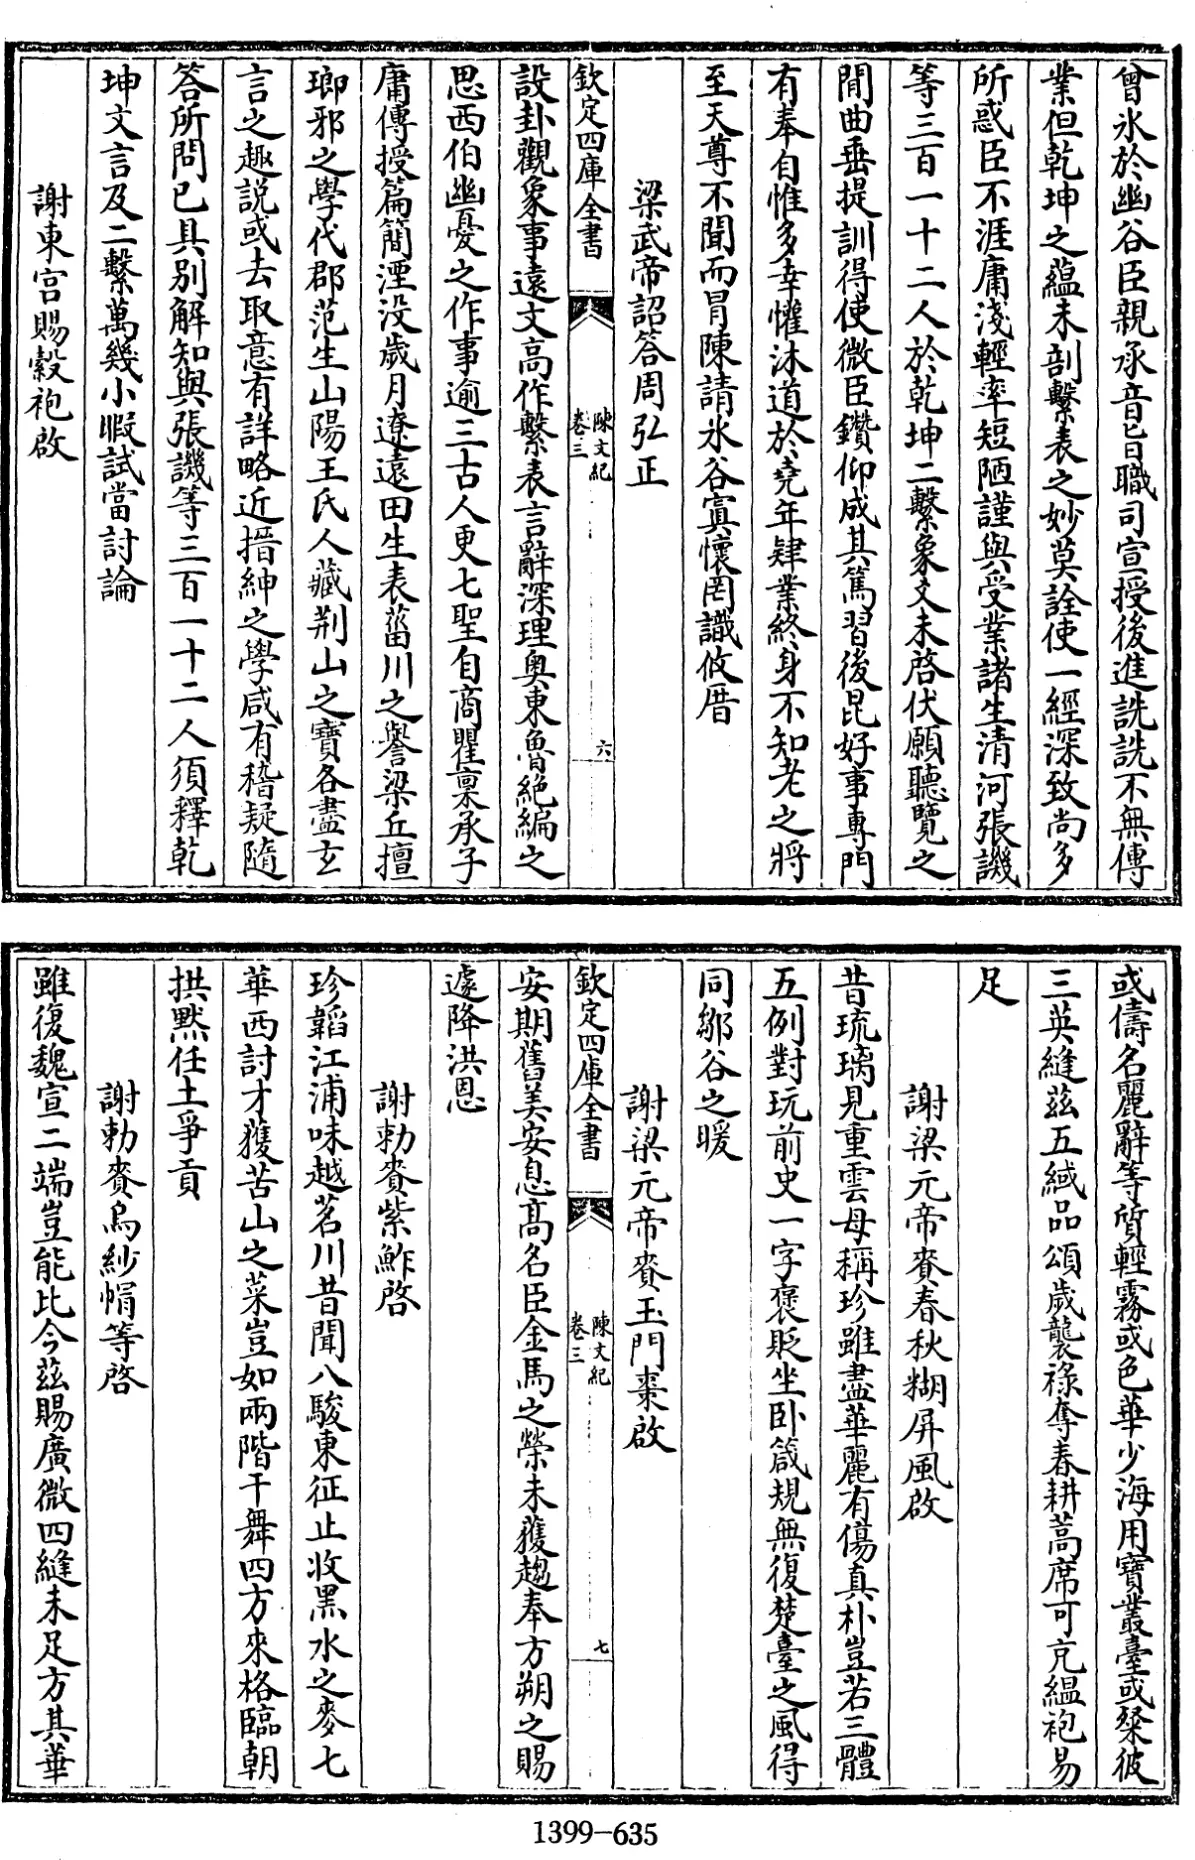 曾氷於幽谷臣親承音旨職司宣授後進詵詵不無傳
業但乾坤之蘊未剖繫表之妙莫詮使一經深致尚多
所惑臣不涯庸淺輕率短陋謹與受業諸生清河張譏
等三百一十二人於乾坤二繫象爻未啓伏願聽覽之
閒曲垂提訓得使微臣鑽仰成其篤習後昆好事專門
有奉自惟多幸懽沐道於堯年肄業終身不知老之將
至天尊不聞而冐陳請氷谷寘懷罔識攸厝
梁武帝詔答周弘正
欽定四庫全書
陳文紀
卷三
六
設卦觀象事遠文高作繫表言辭深理奥東魯絶編之
思西伯幽憂之作事逾三古人更七聖自商瞿稟承子
庸傳授篇簡湮没歲月遼遠田生表菑川之譽梁丘擅
瑯邪之學代郡范生山陽王氏人藏荆山之寶各盡玄
言之趣説或去取意有詳略近搢紳之學咸有稽疑隨
答所問已具别解知與張譏等三百一十二人須釋乾
坤文言及二繫萬幾小暇試當討論
謝東宫賜縠袍啟
或儔名麗辭等質輕霧或色華少海用寶叢臺或粲彼
三英縫兹五緎品頌歲襲禄奪春耕蒿席可亢緼袍易
足
謝梁元帝賚春秋糊屏風啟
昔琉璃見重雲母稱珍雖盡華麗有傷真朴豈若三體
五例對玩前史一字褒貶坐卧箴規無復楚臺之風得
同鄒谷之暖
謝梁元帝賚玉門棗啟
欽定四庫全書
陳文紀
卷三
七
安期舊美安息髙名臣金馬之榮未獲趨奉方朔之賜
遽降洪恩
謝勅賚紫鮓啓
珍韜江浦味越茗川昔聞八駿東征止收黑水之麥七
華西討才獲苦山之菜豈如兩階干舞四方來格臨朝
拱黙任土爭貢
謝勅賚烏紗帽等啓
雖復魏宣二端豈能比今兹賜廣微四縫未足方其華
1399-635